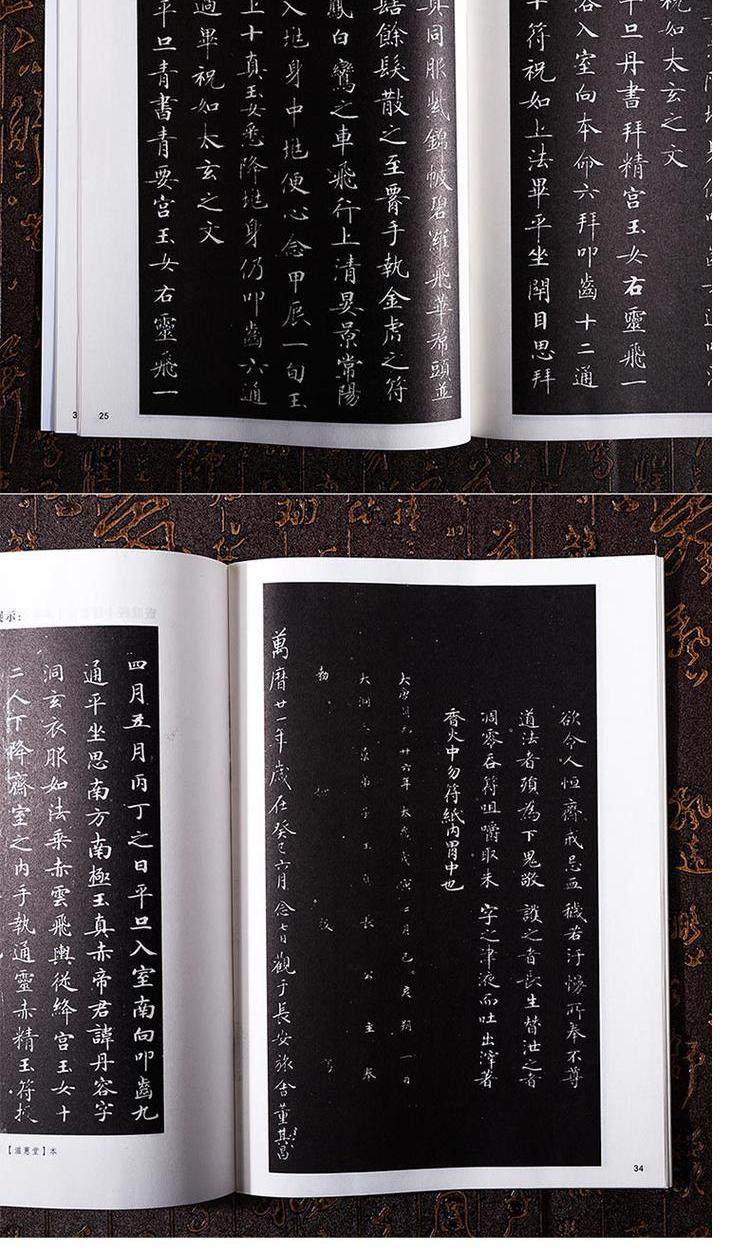 祝如太玄之文
平旦丹書拜精宮玉女右靈飛一
浴入室向本命六拜叩齒十二通
符祝如上法畢平坐閉目思拜
真同服紫錦帔碧羅飛華裙頭並
餘髮散之至腰手執金虎之符
鳳白鸞之車飛行上清晏景常陽
入地身中地便心念甲辰一旬玉
上十真玉女悉降地身仍叩齒六通
過畢祝如太玄之文
平旦青書青要宮玉女右靈飛一
3
25
欲令人恒齋戒忌血穢若汙慢所奉不尊
道法者須為下鬼敬護之者長生替泄之者
凋零吞符咀嚼取朱字之津液而吐出滓著
香火中勿符紙內胃中也
大唐開元廿六年太歲戊寅二月己亥朔一日
大洞三景弟子玉真長公主奉
勅檢校寫
萬曆廿一年歲在癸巳六月念日觀于長安旅舍董其昌
34
示:
四月五月丙丁之日平旦入室南向叩齒九
通平坐思南方南極玉真赤帝君諱丹容字
洞玄衣服如法乘赤雲飛輿從絳宮玉女十
二人下降齋室之內手執通靈赤精玉符授
【滋蕙堂】本